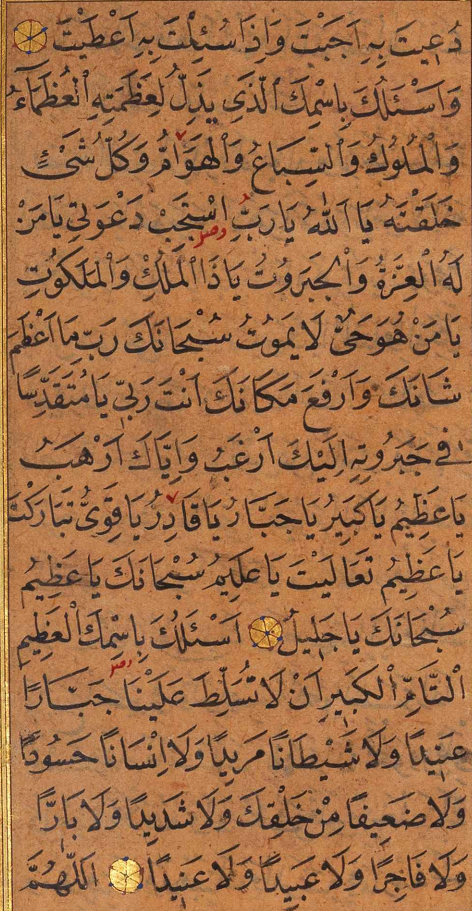 دُعِيتَ بِهِ اَجَبْتَ وَاِذَا سُئِلْتَ بِهِ اَعْطَيْتَ
وَاَسْئَلُكَ بِاسْمِكَ الَّذِى يَذِلُّ لِعَظَمَتِهِ الْعُظَمَٓاءُ
وَالْمُلُوكُ وَالسِّبَاعُ وَالْهَوَٓامُّ وَكُلُّ شَىْءٍ
خَلَقْتَهُ يَا اَللّٰهُ يَارَبِّ اسْتَجِبْ دَعْوَتِى يَامَنْ
لَهُ الْعِزَّةُ وَالْجَبَرُوتُ يَاذَا الْمُلْكِ وَالْمَلَكُوتِ
يَامَنْ هُوَحَىٌّ لَايَمُوتُ سُبْحَانَكَ رَبِّ مَا اَعْظَمَ
شَانَكَ وَاَرْفَعَ مَكَانَكَ اَنْتَ رَبِّى يَامُتَقَدِّسًا
فِى جَبَرُوتِهِ اِلَيْكَ اَرْغَبُ وَاِيَّاكَ اَرْهَبُ
يَاعَظِيمُ يَاكَبِيرُ يَاجَبَّارُ يَاقَادِرُ يَاقَوِىُّ تَبَارَكْتَ
يَاعَظِيمُ تَعَالَيْتَ يَاعَلِيمُ سُبْحَانَكَ يَاعَظِيمُ
سُبْحَانَكَ يَاجَلِيلُ اَسْئَلُكَ بِاسْمِكَ الْعَظِيمِ
التَّامِّ الْكَبِيرِ اَنْ لَاتُسَلِّطَ عَلَيْنَا جَبَّارًا
عَنِيدًا وَلَا شَيْطَانًا مَرِيدًا وَلَا اِنْسَانًا حَسُودًا
وَلَا ضَعِيفًا مِنْ خَلْقِكَ وَلَا شَدِيدًا وَلَا بَارًّا
وَلَا فَاجِرًا وَلَا عَبِيدًا وَلَا عَنِيدًا اَللّٰهُمَّ